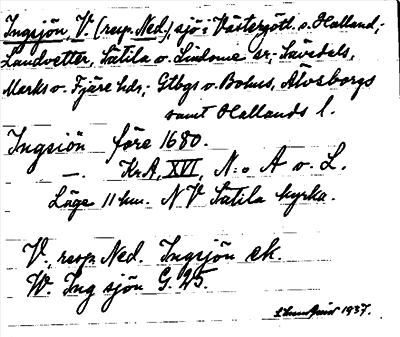 Ingsjön, V. (resp. Ned.), sjö i Västergötl. o. Halland;
Landvetter, Sätila o. Lindome sr; Sävedals,
Marks o. Fjäre hds; Gtbgs o. Bohus, Älvsborgs
samt Hallands l.
Ingsiön före 1680.
—. Kr.A, XVI, N:o A o. L.
Läge 11 km. NV Sätila kyrka.
V., resp. Ned. Ingsjön ek.
W. Ing sjön G. 25.
1937.